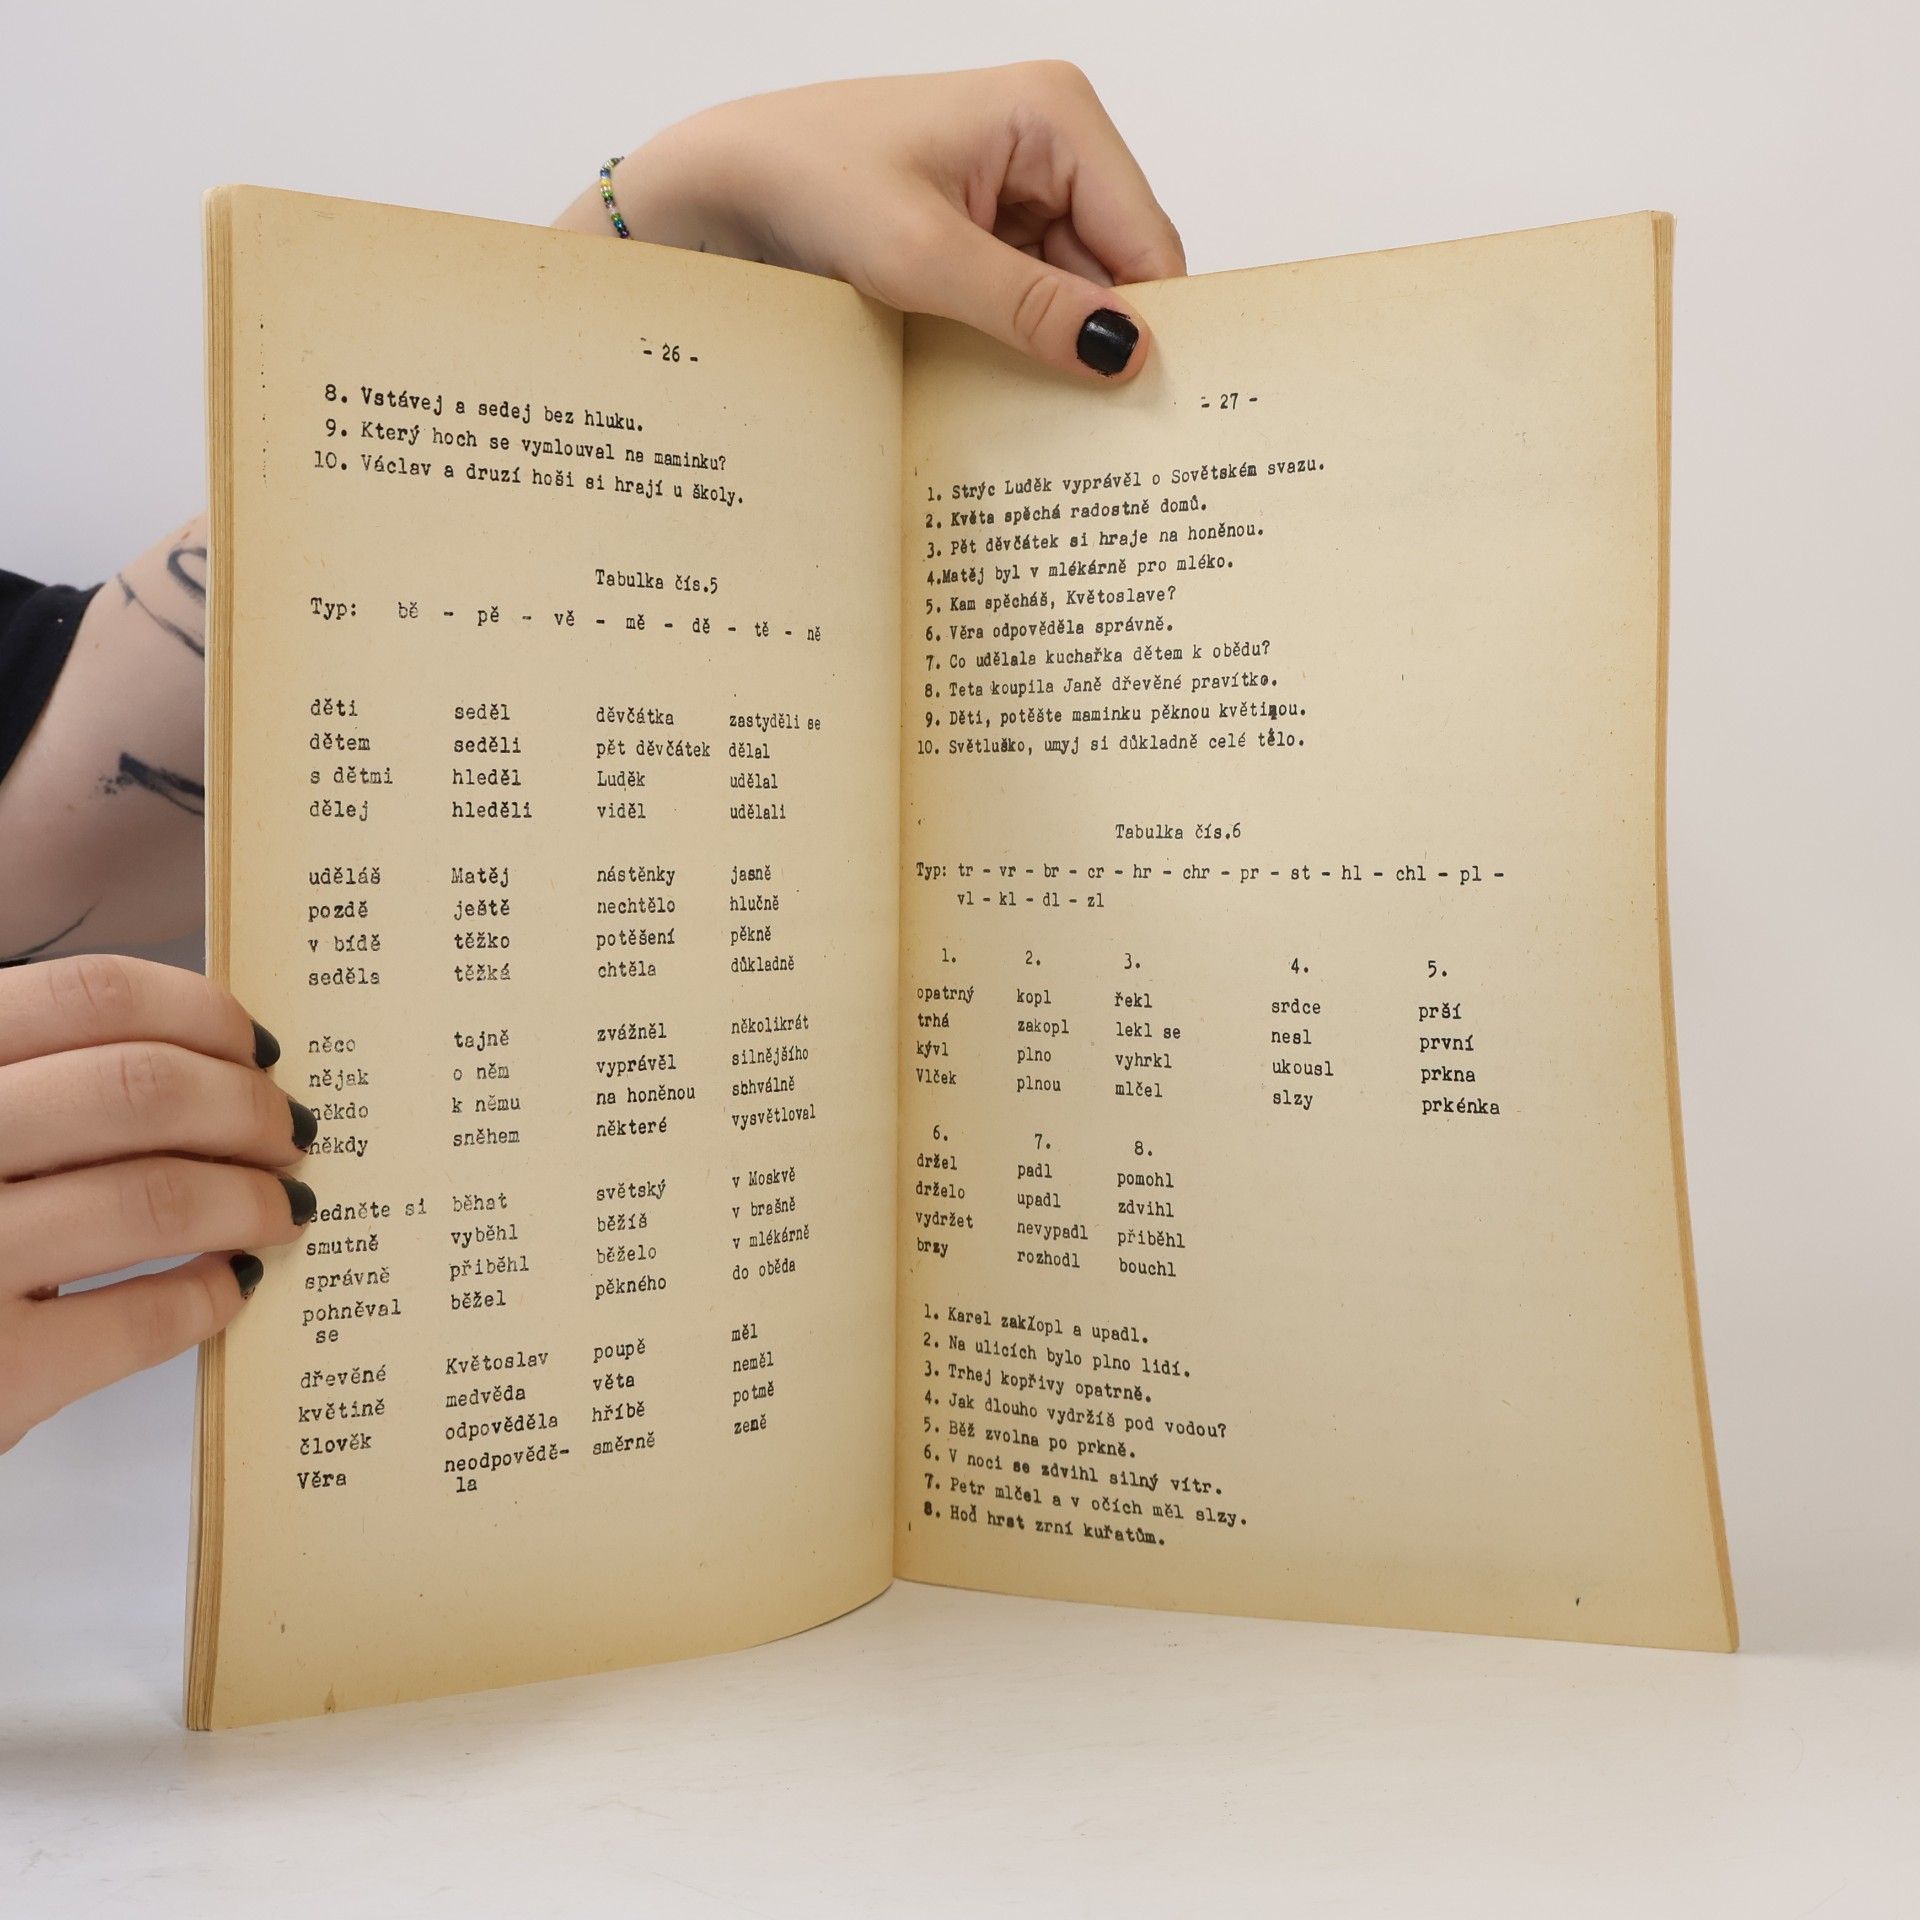 - 26 -
8. Vstávej a sedej bez hluku.
9. Který hoch se vymlouval na maminku?
10. Václav a druzí hoši si hrají u školy.
Tabulka čís.5
Typ: bě - pě - vě - mě - dě - tě - ně
děti seděl děvčátka zastyděli se
dětem seděli pět děvčátek dělal
s dětmi hleděl Luděk udělal
dělej hleděli viděl udělali
uděláš Matěj nástěnky jasně
pozdě ještě nechtělo hlučně
v bídě těžko potěšení pěkně
seděla těžká chtěla důkladně
něco tajně zvážněl několikrát
nějak o něm vyprávěl silnějšího
někdo k němu na honěnou schválně
někdy sněhem některé vysvětloval
sedněte si běhat světský v Moskvě
smutně vyběhl běžíš v brašně
správně přiběhl běželo v mlékárně
pohněval běžel pěkného do oběda
se
dřevěné Květoslav poupě měl
květině medvěda věta neměl
člověk odpověděla hříbě potmě
Věra neodpovědě- směrně země
la
- 27 -
1. Strýc Luděk vyprávěl o Sovětském svazu.
2. Květa spěchá radostně domů.
3. Pět děvčátek si hraje na honěnou.
4.Matěj byl v mlékárně pro mléko.
5. Kam spěcháš, Květoslave?
6. Věra odpověděla správně.
7. Co udělala kuchařka dětem k obědu?
8. Teta koupila Janě dřevěné pravítko.
9. Děti, potěšte maminku pěknou květinou.
10. Světluško, umyj si důkladně celé tělo.
Tabulka čís.6
Typ: tr - vr - br - cr - hr - chr - pr - st - hl - chl - pl -
vl - kl - dl - zl
1. 2. 3. 4. 5.
opatrný kopl řekl srdce prší
trhá zakopl lekl se nesl první
kývl plno vyhrkl ukousl prkna
Vlček plnou mlčel slzy prkénka
6. 7. 8.
držel padl pomohl
drželo upadl zdvihl
vydržet nevypadl přiběhl
brzy rozhodl bouchl
1. Karel zakopl a upadl.
2. Na ulicích bylo plno lidí.
3. Trhej kopřivy opatrně.
4. Jak dlouho vydržíš pod vodou?
5. Běž zvolna po prkně.
6. V noci se zdvihl silný vítr.
7. Petr mlčel a v očích měl slzy.
8. Hoď hrst zrní kuřatům.